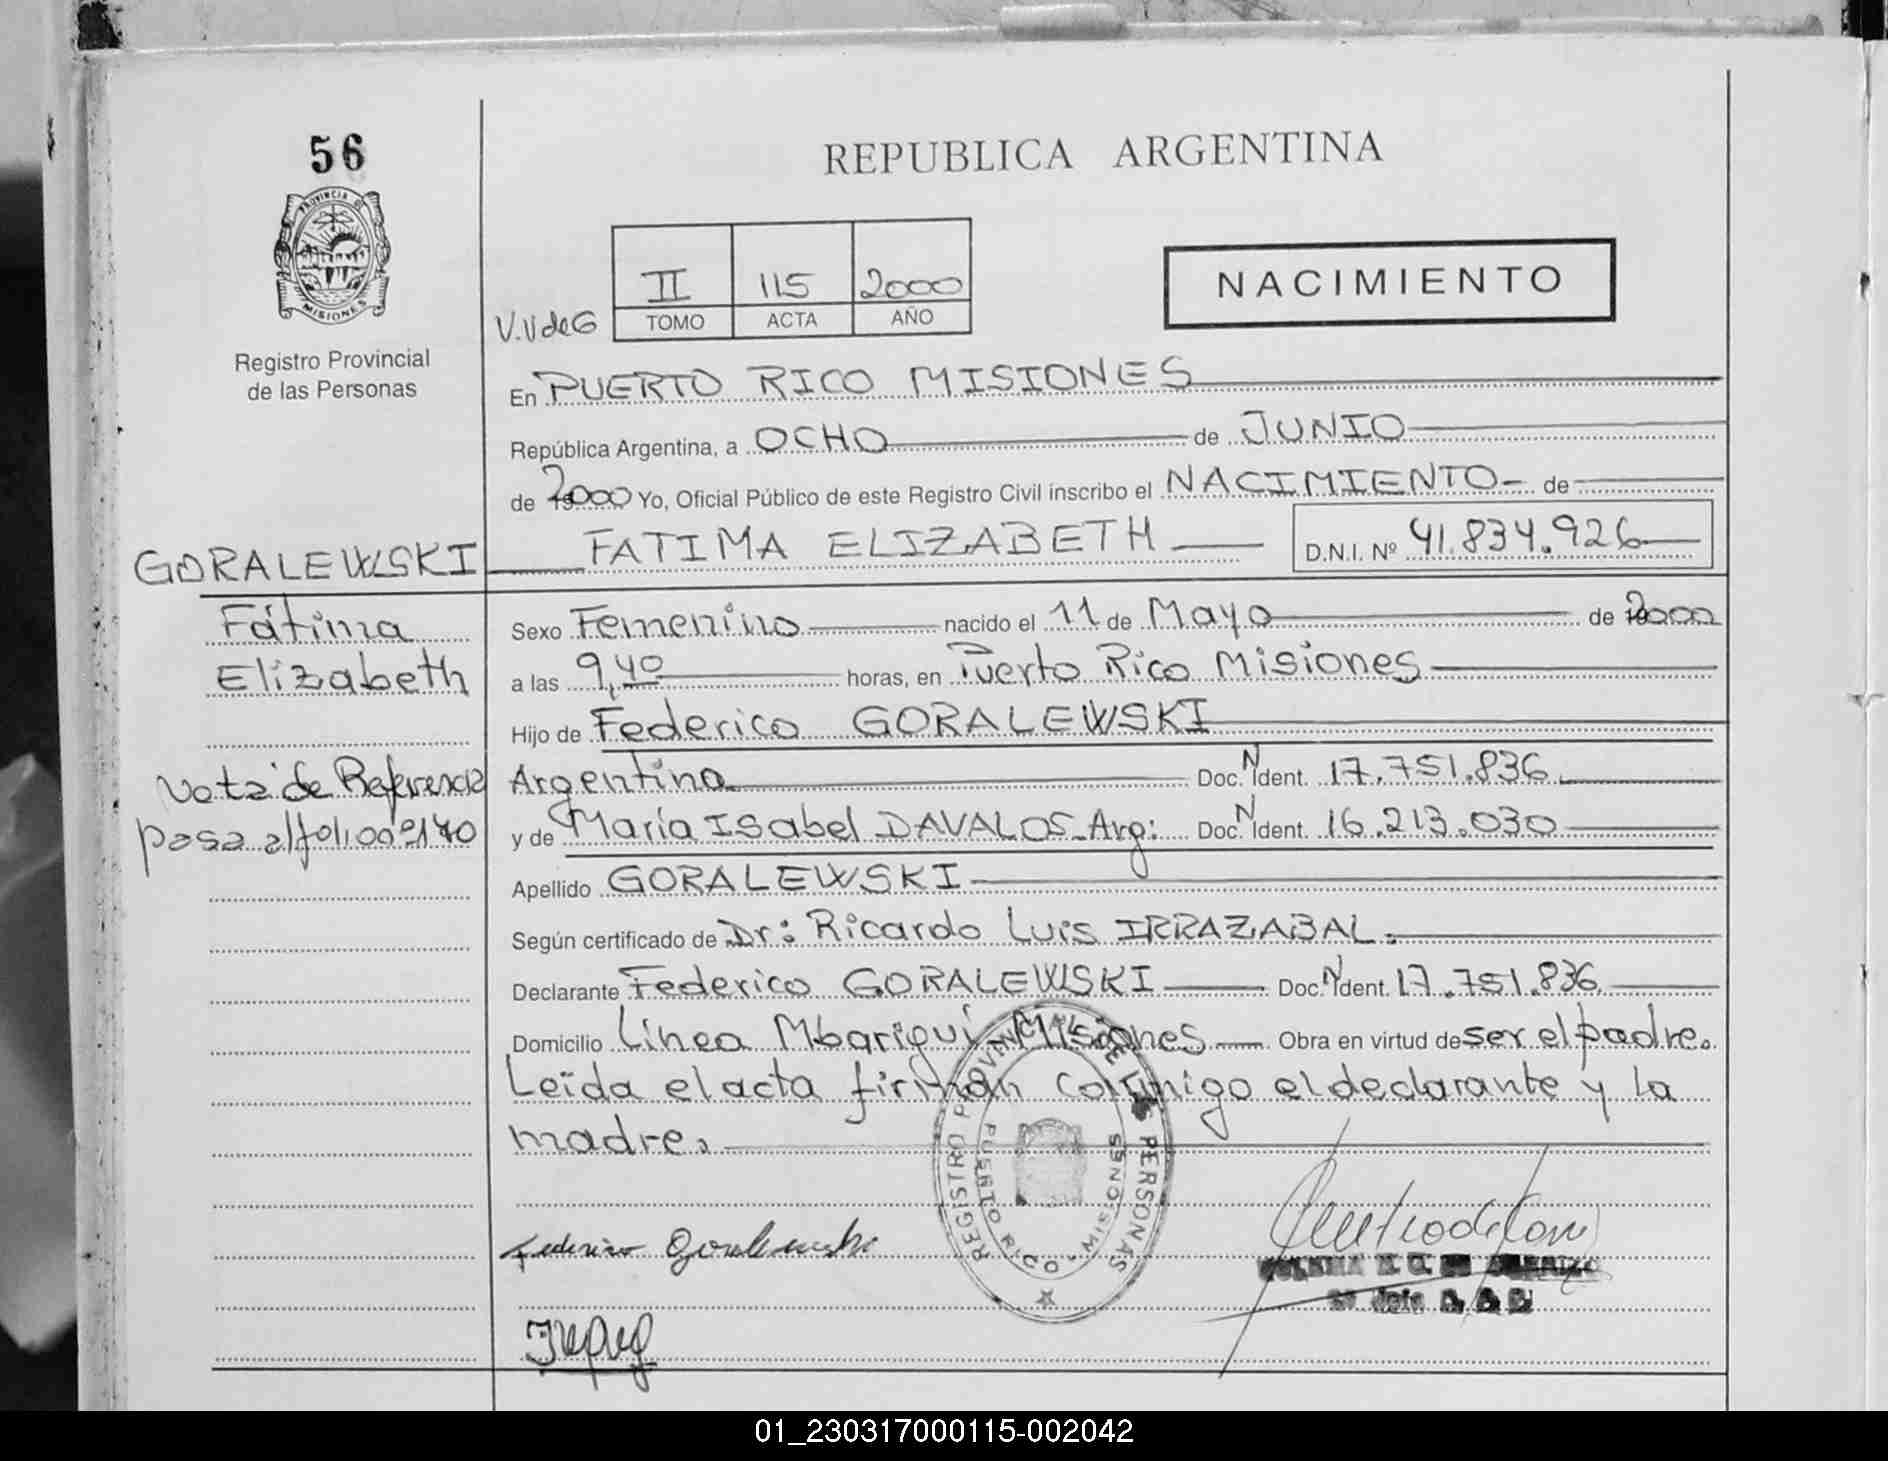 56
PROVINCIA DE
MISIONES
Registro Provincial
de las Personas
REPUBLICA ARGENTINA
II 115 2000
V.V de G TOMO ACTA AÑO
NACIMIENTO
En PUERTO RICO MISIONES
República Argentina, a OCHO de JUNIO
de 2000 Yo, Oficial Público de este Registro Civil inscribo el NACIMIENTO de
GORALEWSKI FATIMA ELIZABETH D.N.I. Nº 41.834.926
Fátima
Elizabeth
Nota de Referencia
pasa al folio nº 140
Sexo Femenino nacido el 11 de Mayo de 2000
a las 9,40 horas, en Puerto Rico Misiones
Hijo de Federico GORALEWSKI
Argentina Doc. N Ident. 17.751.836
y de María Isabel DAVALOS Arg: Doc. N Ident. 16.213.030
Apellido GORALEWSKI
Según certificado de Dr: Ricardo Luis IRRAZABAL.
Declarante Federico GORALEWSKI Doc. N Ident. 17.751.836
Domicilio Línea Mbariguí Misiones Obra en virtud de ser el padre.
Leída el acta firman conmigo el declarante y la
madre.
REGISTRO PROVINCIAL DE LAS PERSONAS
PUERTO RICO - MISIONES
Federico Goralewski
01_230317000115-002042